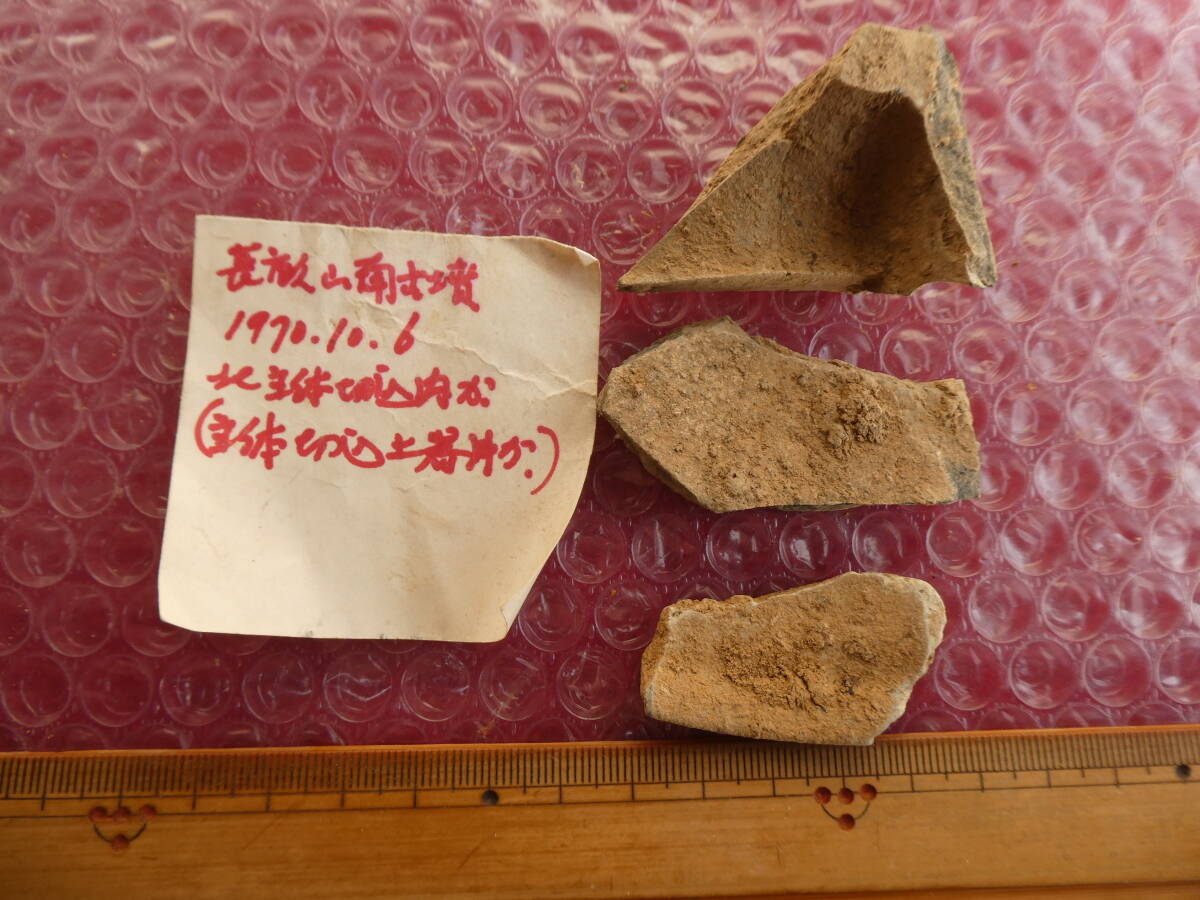 長放山南古墳
1970.10.6
北主体切込内か
(主体切込土器片か?)